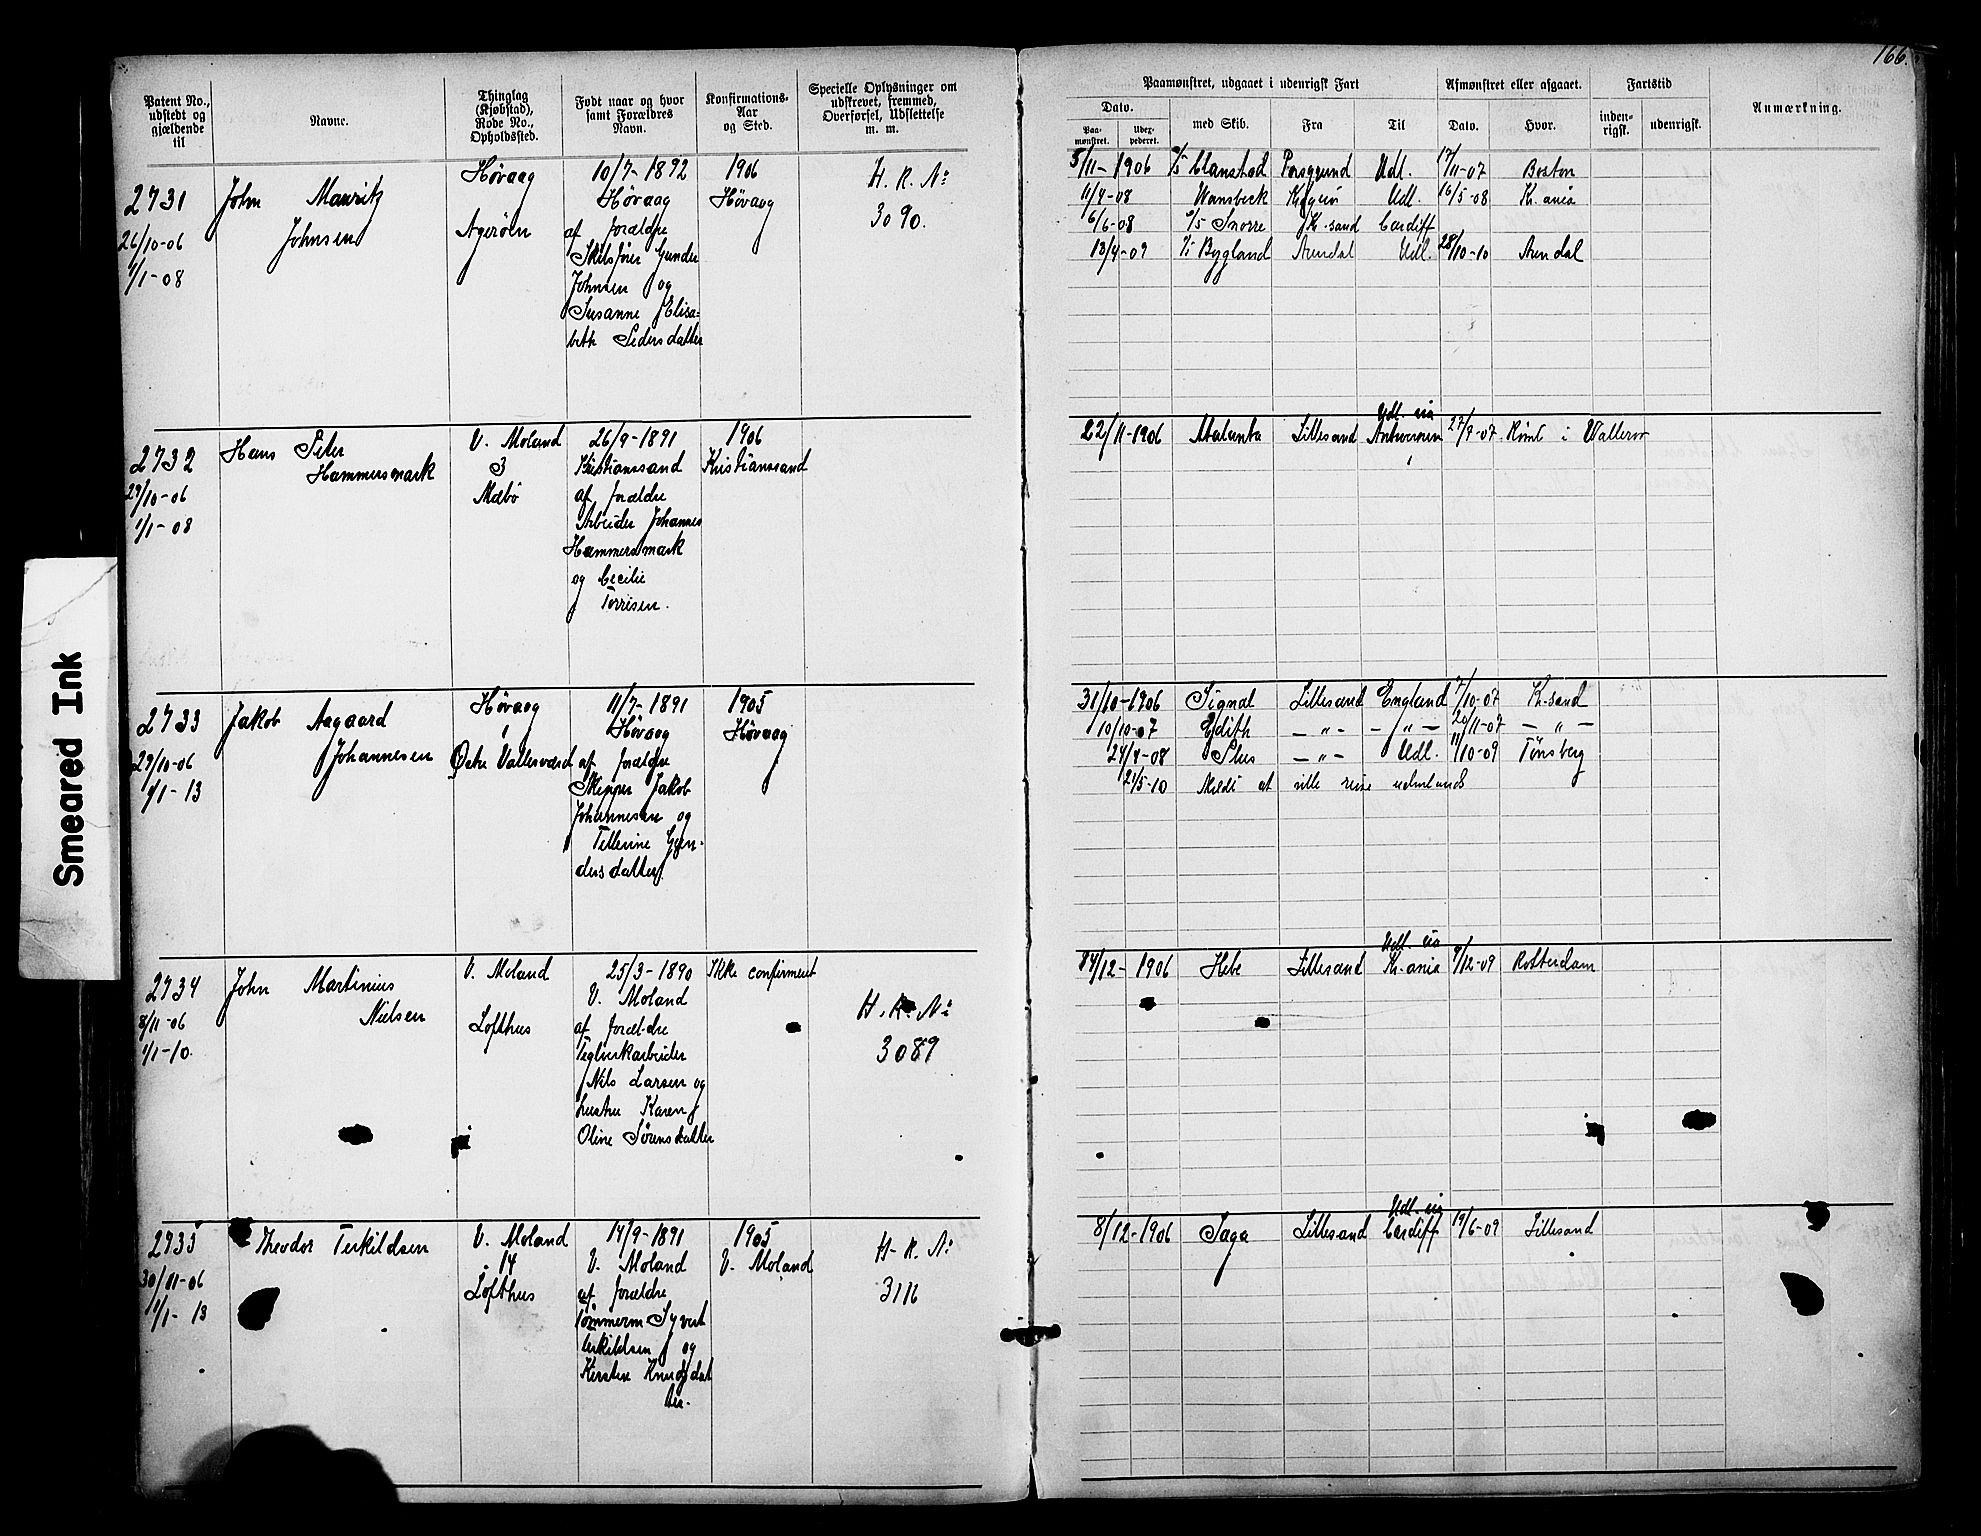 166.
Patent No., udstedt og gjældende til
Navne.
Thinglag (Kjøbstad), Rode No., Opholdssted.
Født naar og hvor samt Forældres Navn.
Konfirmations-Aar og Sted.
Specielle Oplysninger om udskrevet, fremmed, Overførsel, Udslettelse m. m.
Paamønstret, udgaaet i udenrigsk Fart
Afmønstret eller afgaaet.
Fartstid
Anmærkning.
Dato.
Paa-mønstret.
Udex-pederet.
med Skib.
Fra
Til
Dato.
Hvor.
inden-rigsk.
udenrigsk.
2731
26/10-06
1/1-08
John Mauritz
Johnsen
Høvaag
Agerøen
10/7-1892
Høvaag
af forældre
Skibsfører Gunder
Johnsen og
Susanne Elisa-
beth Pedersdatter
1906
Høvaag
H. R. No
3090.
5/11-1906 Porsgrund Udl. 17/11-07 Boston
11/4-08 Wansbeck Kragerø Udl. 16/5-08 Kr.ania
6/6-08 S/S Snorre Kr.sand Cardiff
13/4-09 Bygland Arendal Udl. 28/10-10 Arendal
2732
29/10-06
1/1-08
Hans Peter
Hammersmark
V. Moland
3
Mæbø
26/9-1891
Kristianssand
af forældre
Arbeider Johannes
Hammersmark
og Cecilie
Torrisen.
1906
Kristianssand
Udl. via
22/11-1906 Atalanta Lillesand Antwerpen 27/9-07 Rømt i Wallaroo
2733
29/10-06
1/1-13
Jakob Aagaard
Johannesen
Høvaag
1
Østre Vallesværd
11/7-1891
Høvaag
af forældre
Skipper Jakob
Johannesen og
Tellerine Gun-
dersdatter
1905
Høvaag
31/10-1906 Signal Lillesand England 7/10-07 Kr.sand
10/10-07 Edith — „ — — „ — 20/11-07 — „ —
24/4-08 — „ — Udl. 11/10-09 Tønsberg
21/5-10 Meldt at ville reise udenlands
2734
8/11-06
1/1-10.
John Martinius
Nielsen
V. Moland
Lofthus
25/3-1890
V. Moland
af forældre
Teglverkarbeider
Nils Larsen og
hustru Karen
Oline Sørensdatter
Ikke confirmeret
H. R. No
3089
Udl. via
4/12-1906 Hebe Lillesand Kr.ania 9/12-09 Rotterdam
2735
30/11-06
1/1-13
Theodor Terkildsen
V. Moland
14
Lofthus
14/9-1891
V. Moland
af forældre
Tømmerm Syvert
Terkildsen og
Kirstine Knudsdat
ter.
1905
V. Moland
H. R. No
3116
Udl. via
8/12-1906 Saga Lillesand Cardiff 19/6-09 Lillesand
Smeared Ink